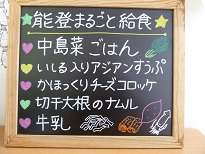 能登まるごと給食
中島菜ごはん
いしる入りアジアンすうぷ
かほっくりチーズコロッケ
切干大根のナムル
牛乳